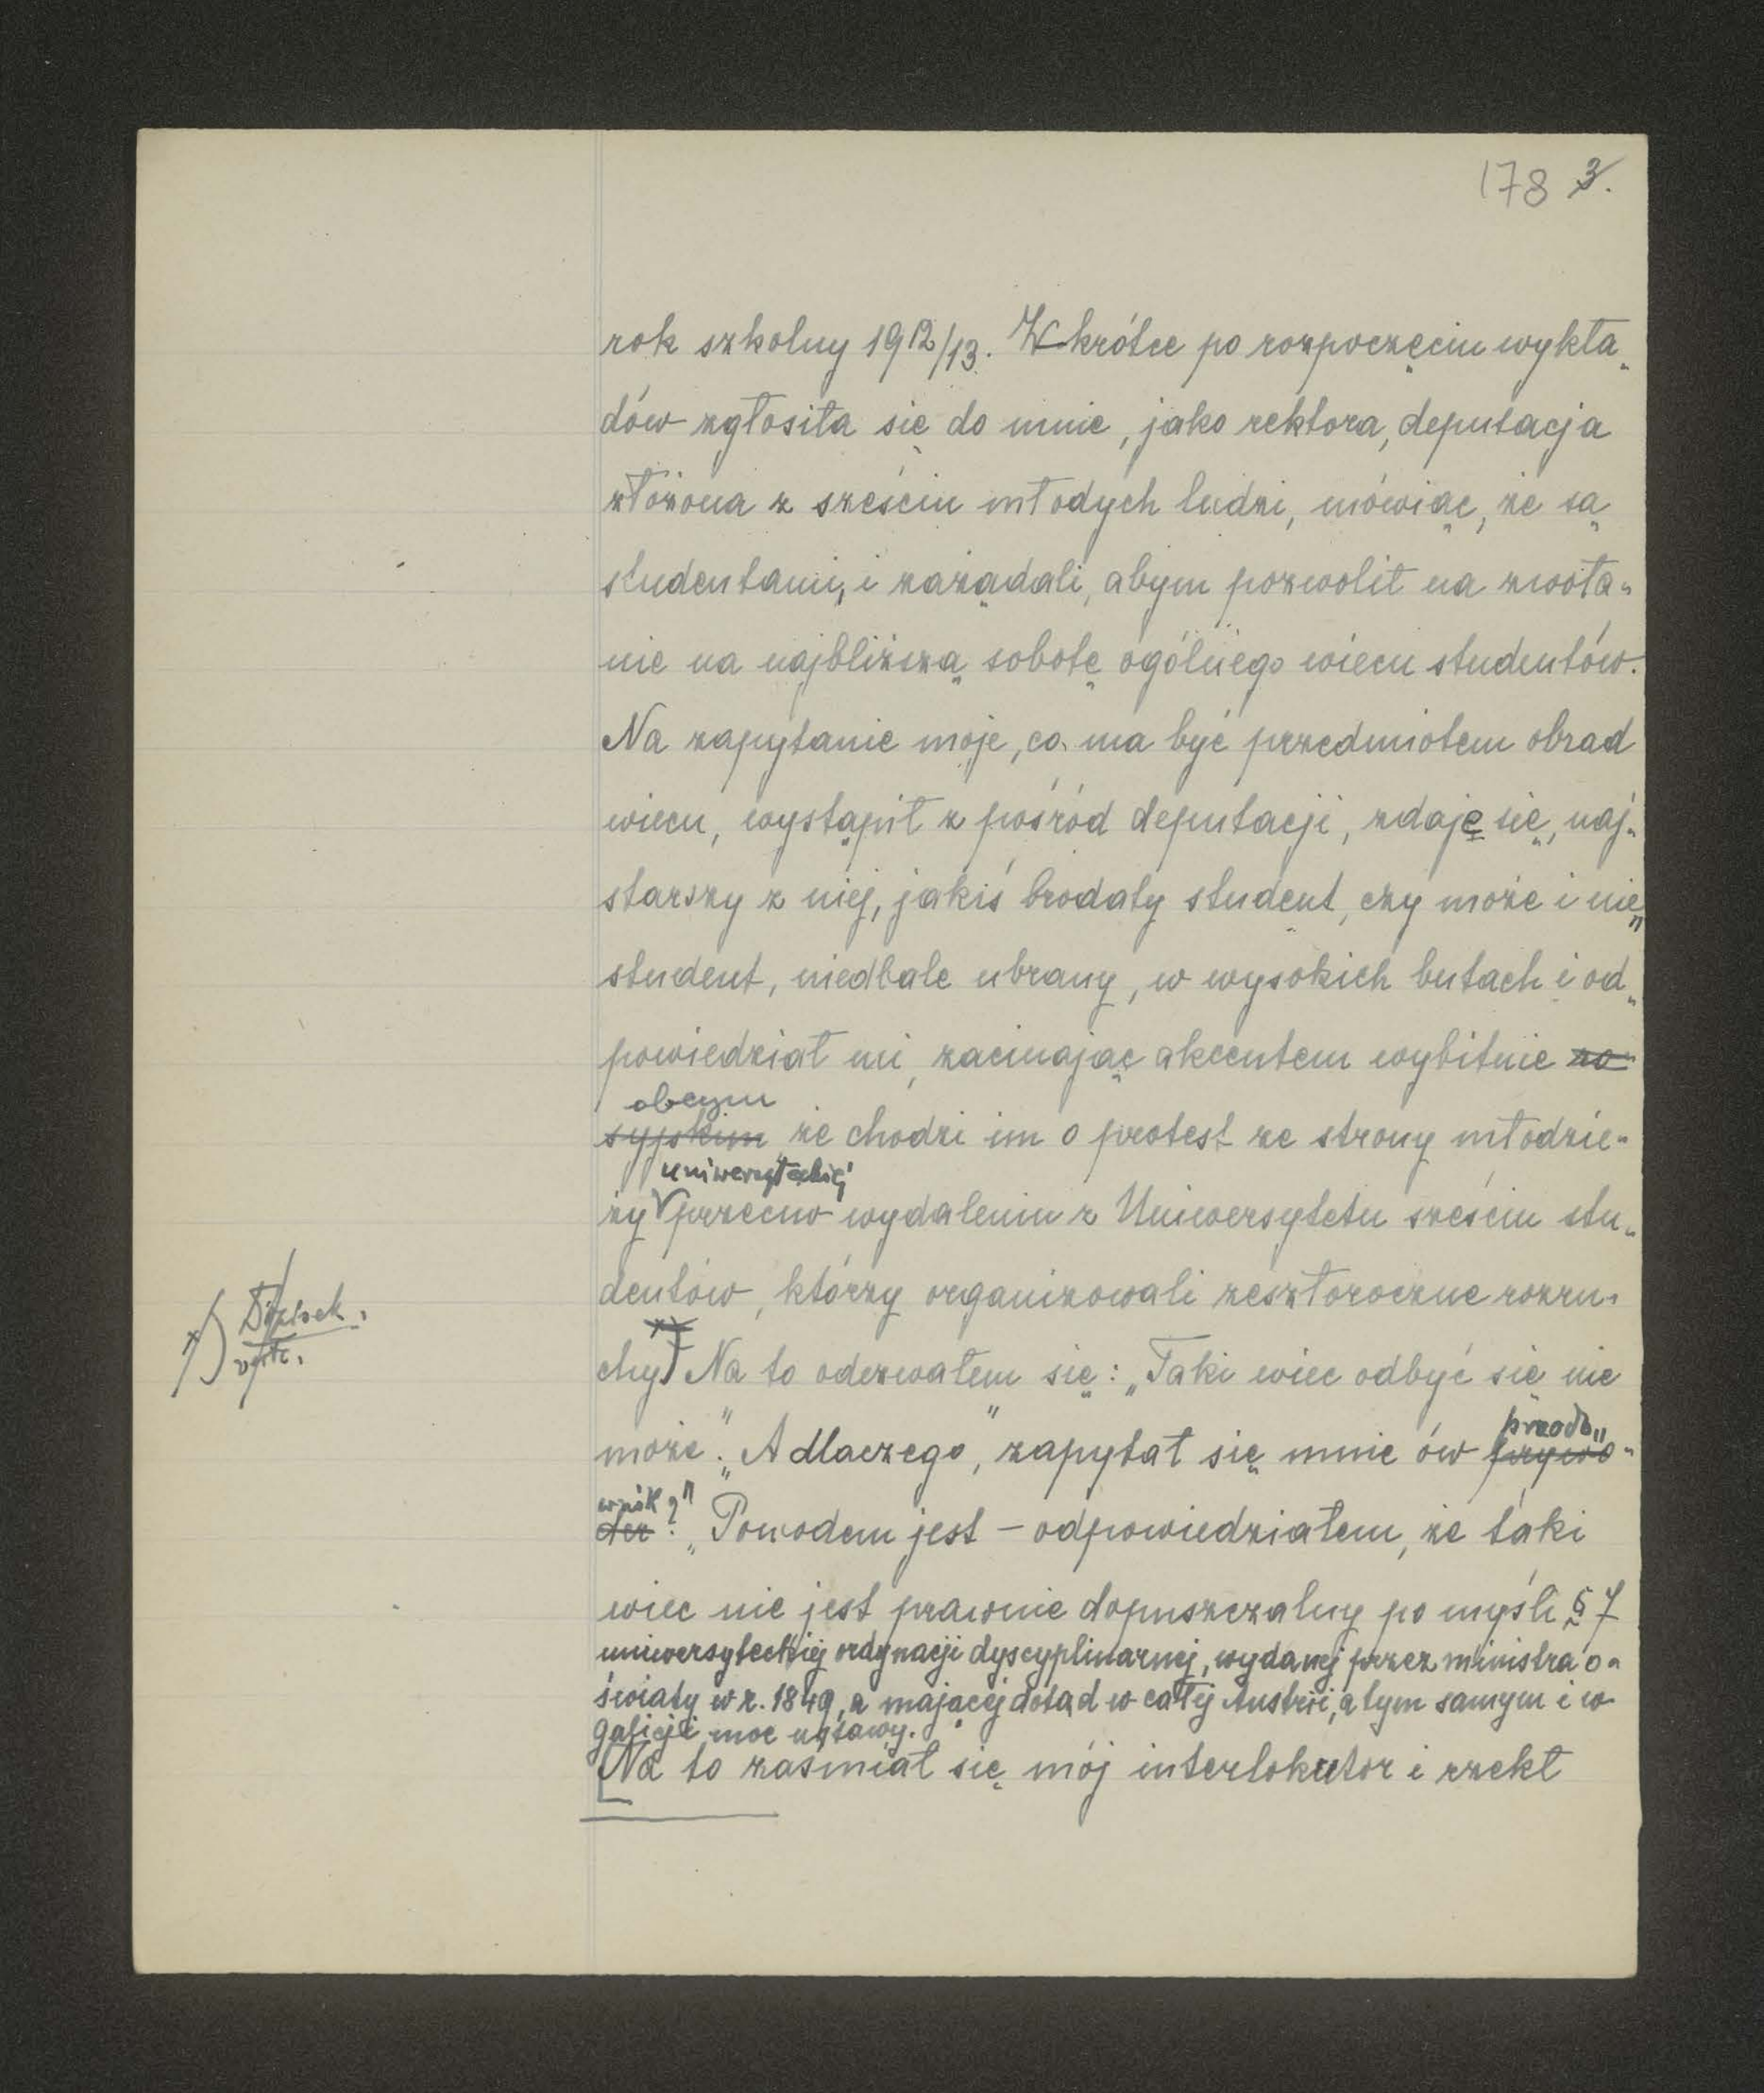 178 3.
rok szkolny 1912/13. Wkrótce po rozpoczęciu wykła„
dów zgłosiła się do mnie, jako rektora, deputacja
złożona z sześciu młodych ludzi, mówiąc, że są
studentami, i zażądali, abym pozwolił na zwoła„
nie na najbliższą sobotę ogólnego wiecu studentów.
Na zapytanie moje, co ma być przedmiotem obrad
wiecu, wystąpił z pośród deputacji, zdaje się, naj„
starszy z niej, jakiś brodaty student, czy może i nie„
student, niedbale ubrany, w wysokich butach i od„
powiedział mi, zacinając akcentem wybitnie ro„
obcym
syjskim że chodzi im o protest ze strony młodzie„
uniwersyteckiej
ży przeciw wydaleniu z Uniwersytetu sześciu stu„
dentów, którzy organizowali zeszłoroczne rozru„
chy x) Na to odezwałem się: „Taki wiec odbyć się nie
x) Dopisek
może". „A dlaczego", zapytał się mnie ów przywó„
przodo„
wnik?"
dca? „Powodem jest – odpowiedziałem, że taki
wiec nie jest prawnie dopuszczalny po myśli § 7
uniwersyteckiej ordynacji dyscyplinarnej, wydanej przez ministra o„
światy w r. 1849, a mającej dotąd w całej Austrii, a tym samym i w
Galicji moc ustawy.
Na to zaśmiał się mój interlokutor i rzekł